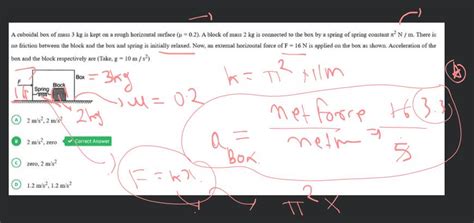 A cuboidal box of mass 3 kg is kept on a rough horizontal surface (μ = 0.2). A block of mass 2 kg is connected to the box by a spring of spring constant π² N / m. There is
no friction between the block and the box and spring is initially relaxed. Now, an external horizontal force of F = 16 N is applied on the box as shown. Acceleration of the
box and the block respectively are (Take, g = 10 m / s²)
F Box = 3kg
Spring Block
k = π² × 1/m
μ = 02
2kg
A 2 m/s², 2 m/s²
B 2 m/s², zero ✓ Correct Answer
C zero, 2 m/s²
D 1.2 m/s², 1.2 m/s²
a box = net force
5
F = kx
π² x